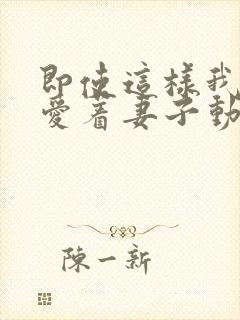 即使這樣我
愛着妻子動
陳一新